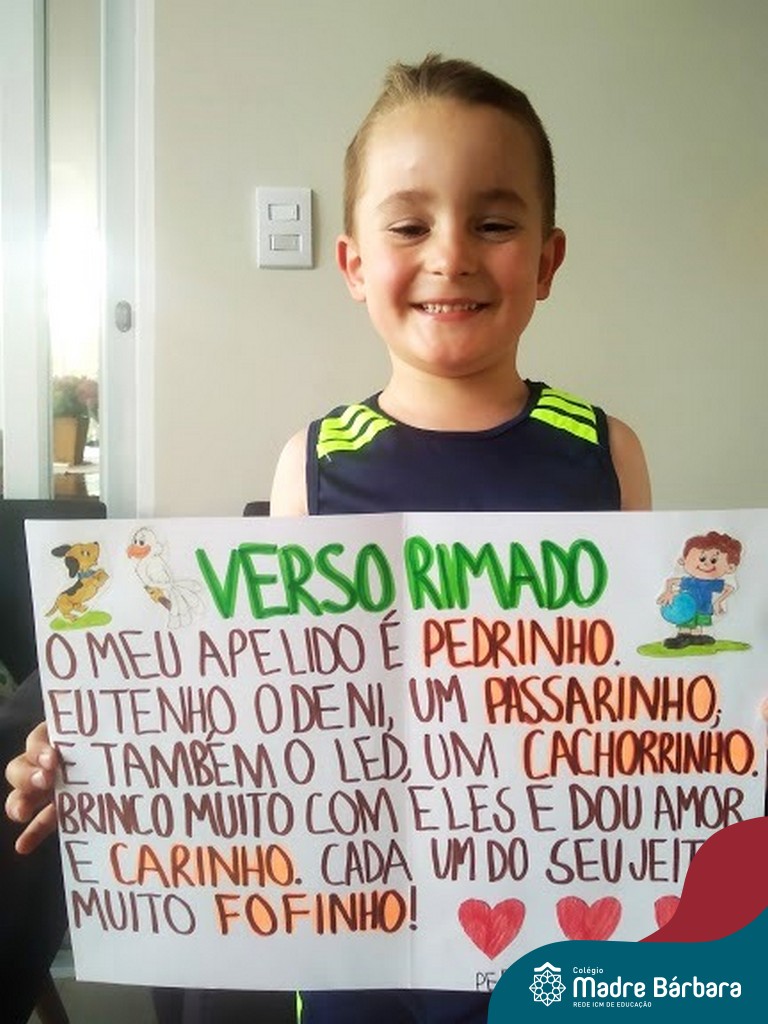 VERSO RIMADO
O MEU APELIDO É PEDRINHO.
EU TENHO O DENI, UM PASSARINHO;
E TAMBÉM O LED, UM CACHORRINHO.
BRINCO MUITO COM ELES E DOU AMOR
E CARINHO. CADA UM DO SEU JEIT
MUITO FOFINHO!
PE
Colégio
Madre Bárbara
REDE ICM DE EDUCAÇÃO